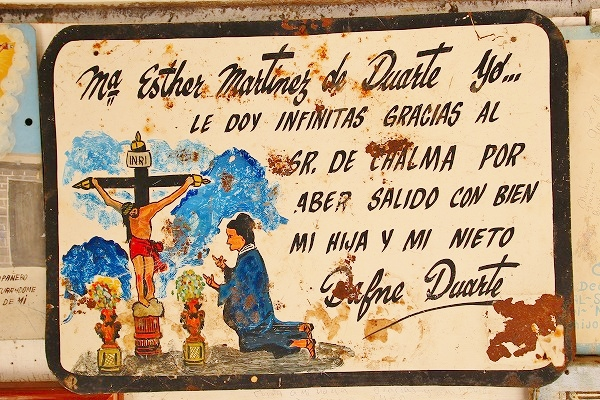 Mª Esther Martinez de Duarte Yo...
LE DOY INFINITAS GRACIAS AL
SR. DE CHALMA POR
ABER SALIDO CON BIEN
MI HIJA Y MI NIETO
Dafne Duarte
INRI
PANERO
DE MI